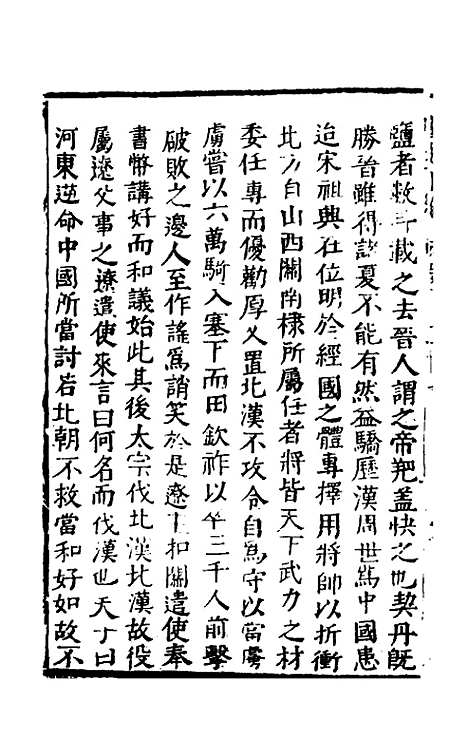 鹽者數斗載之去晉人謂之帝羓盖快之也契丹旣
勝晉雖得諸夏不能有然益驕歷漢周世爲中國患
迨宋祖興在位明於經國之體專擇用將帥以折衝
北方自山西關南棣所屬任者將皆天下武力之材
委任專而優勸厚又置北漢不攻令自爲守以當虜
虜嘗以六萬騎入塞下而田欽祚以卒三千人前擊
破敗之邊人至作謠爲誚笑於是遼主扣關遣使奉
書幣講好而和議始此其後太宗伐北漢北漢故役
屬遼父事之遼遣使來言曰何名而伐漢也天子曰
河東逆命中國所當討若北朝不救當和好如故不